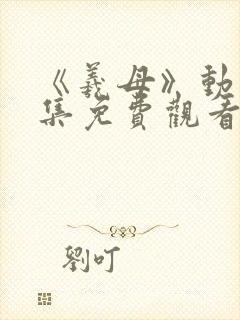 《義母》動
集免費觀看
劉叮